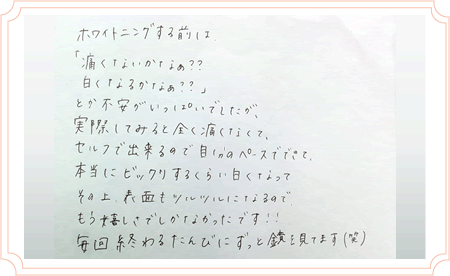 ホワイトニングする前は
「痛くないかなぁ??
白くなるかなぁ??」
とか不安がいっぱいでしたが、
実際してみると全く痛くなくて、
セルフで出来るので自分のペースでできて、
本当にビックリするくらい白くなって
その上、表面もツルツルになるので
もう嬉しさでしかなかったです!!
毎回終わるたんびにずっと鏡を見てます(笑)